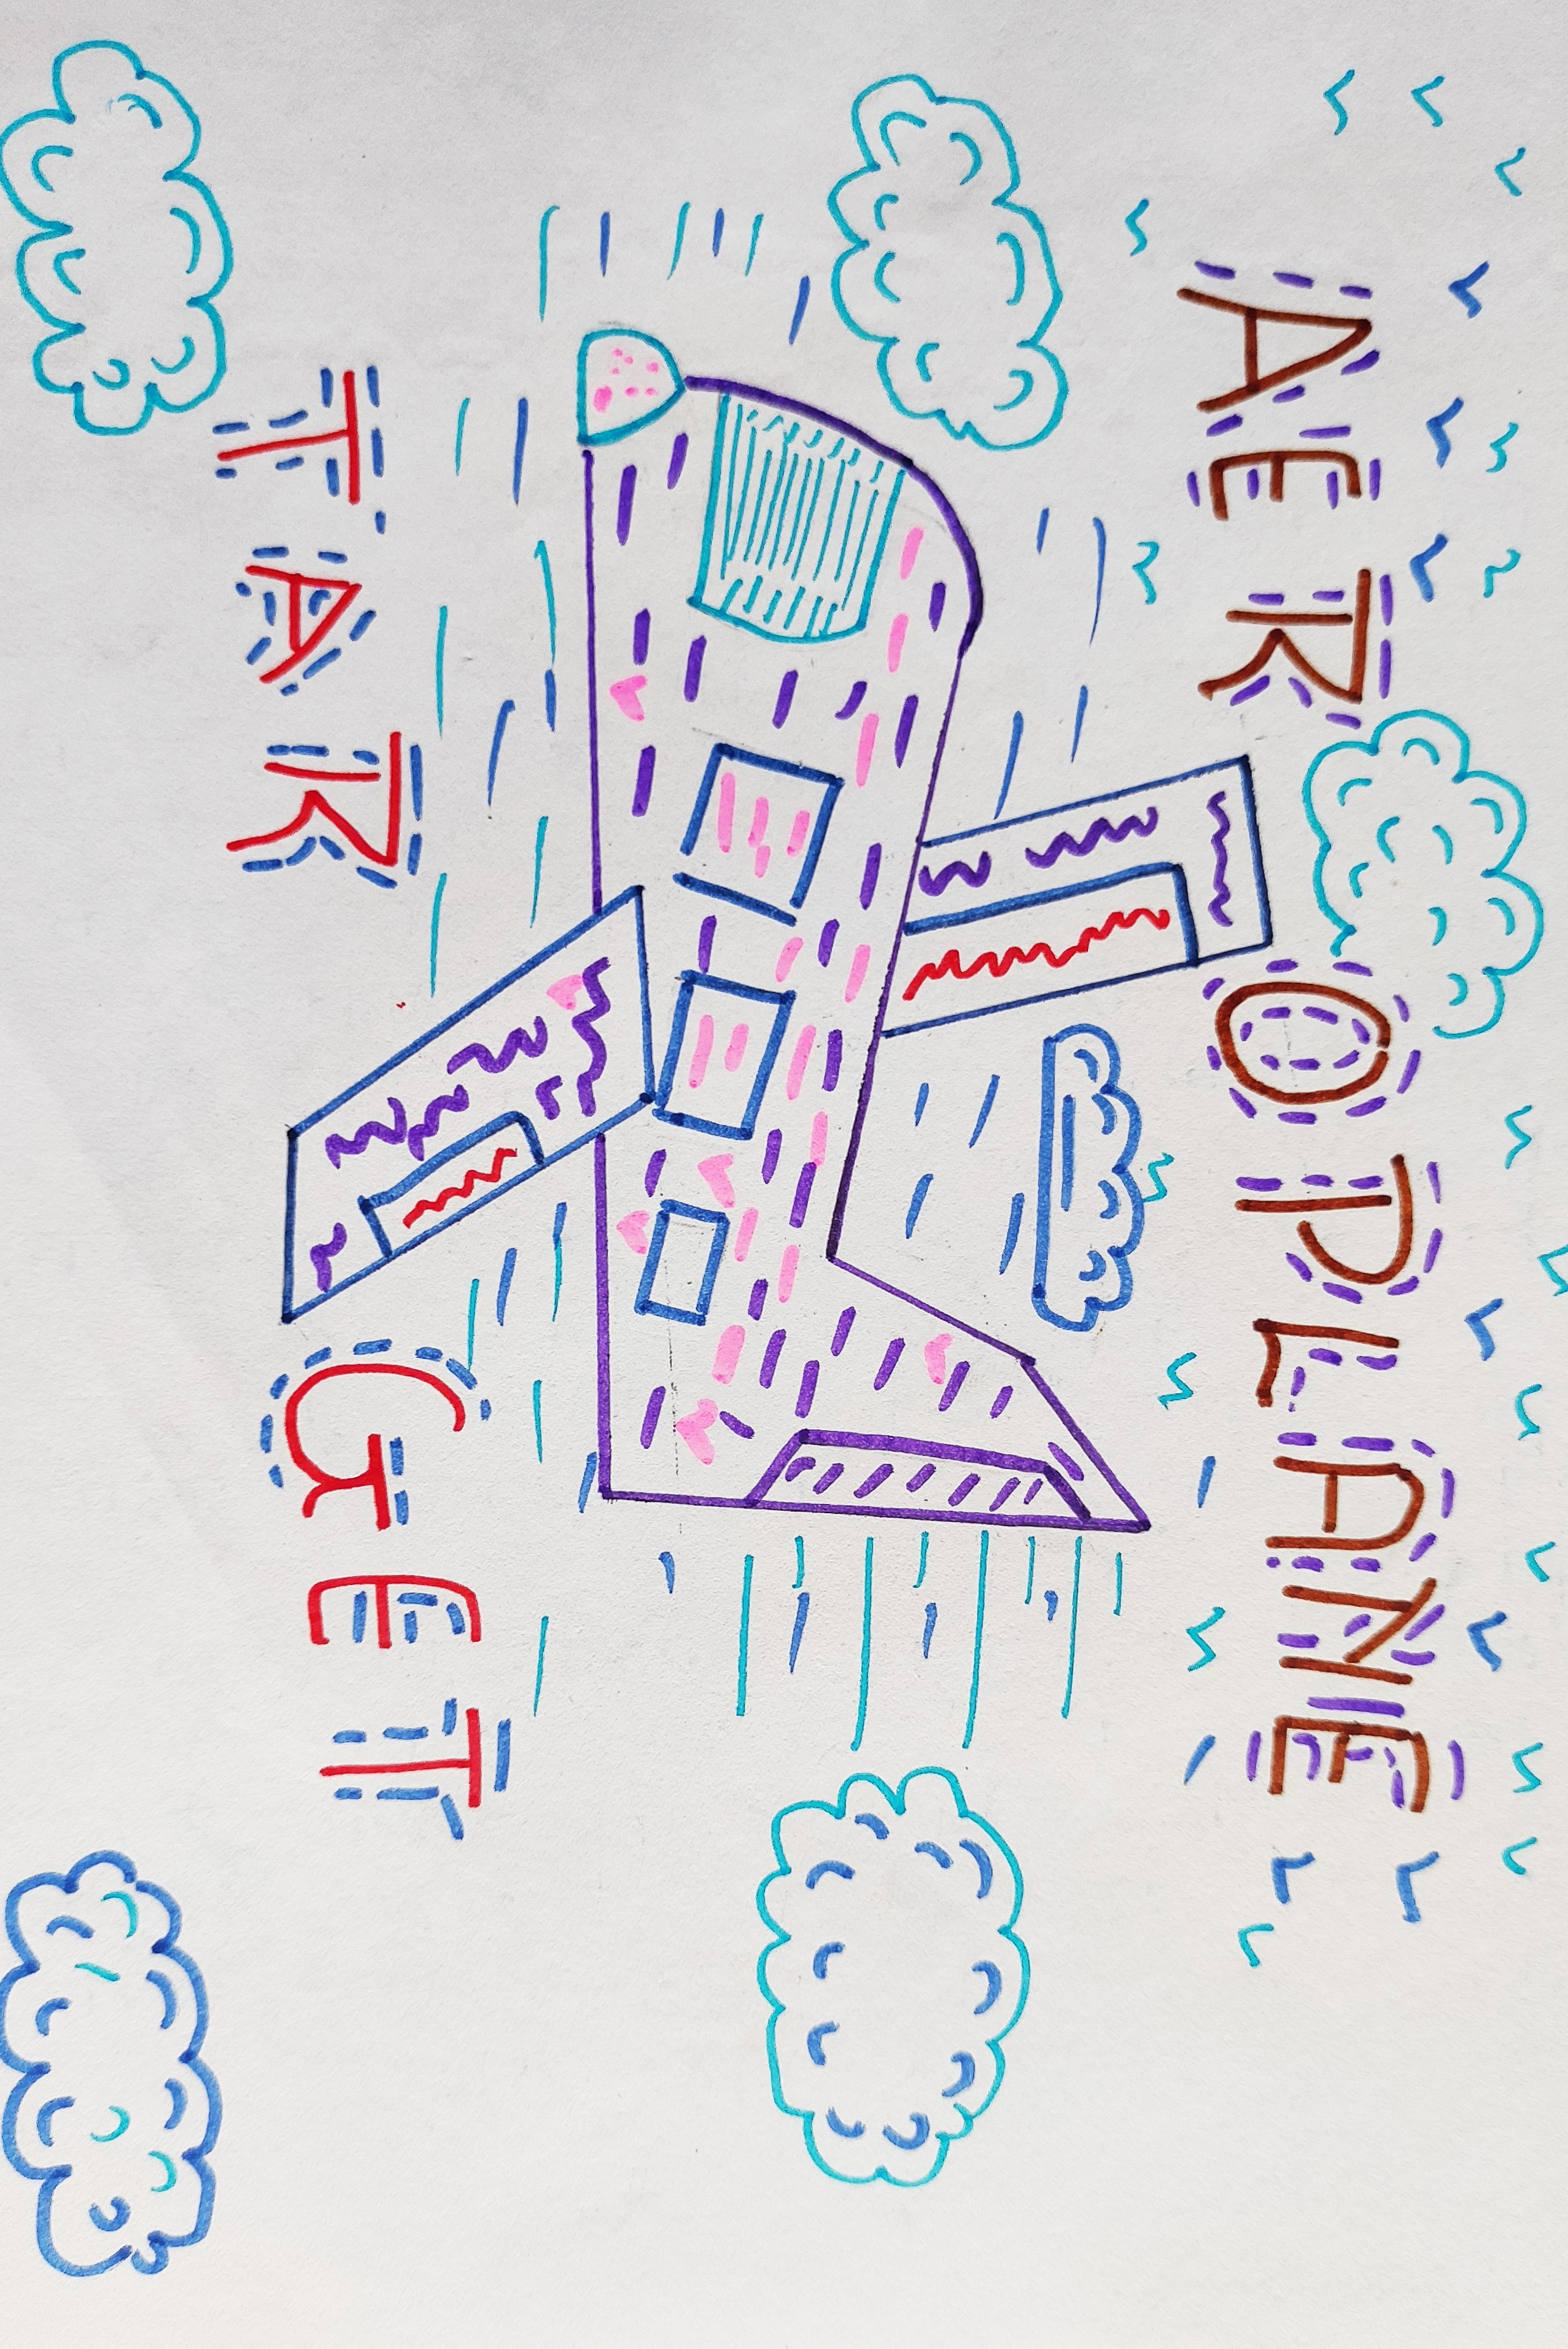 AEROPLANE
TARGET